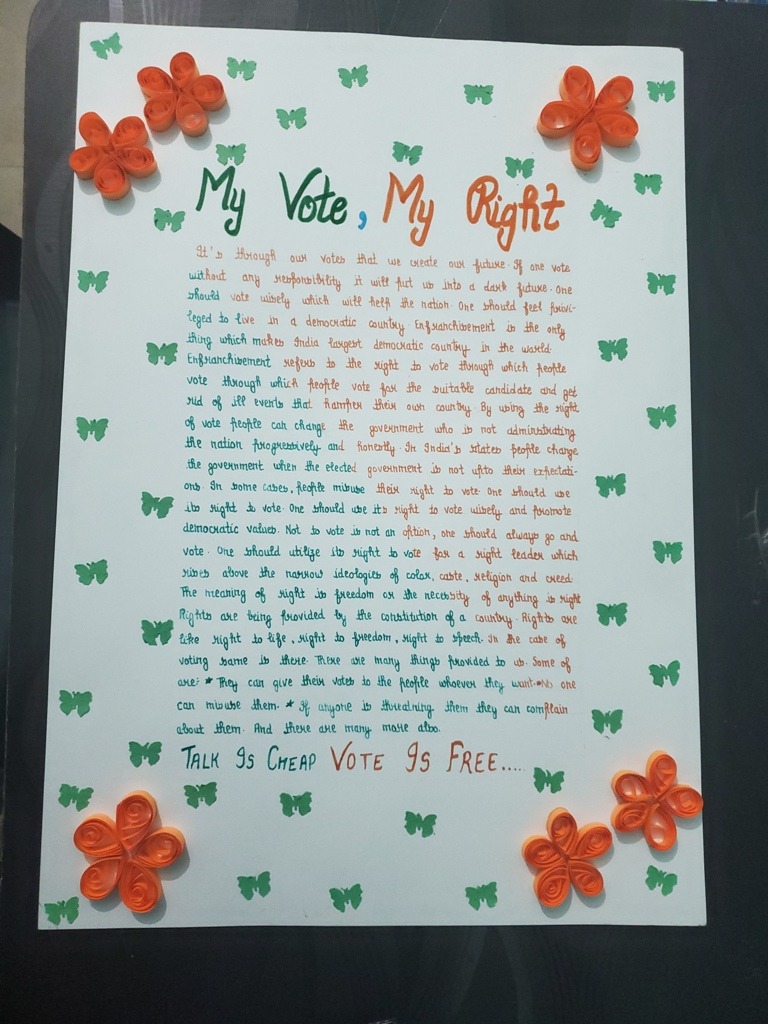 My Vote, My Right
It's through our votes that we create our future. If one vote
without any responsibility it will put us into a dark future. One
should vote wisely which will help the nation. One should feel privi-
leged to live in a democratic country. Enfranchisement is the only
thing which makes India largest democratic country in the world.
Enfranchisement refers to the right to vote through which people
vote through which people vote for the suitable candidate and get
rid of ill events that hamper their own country. By using the right
of vote people can change the government who is not adminstrating
the nation progressively and honestly. In India's states people change
the government when the elected government is not upto their expectati-
ons. In some cases, people misuse their right to vote. One should use
its right to vote. One should use its right to vote wisely and promote
democratic values. Not to vote is not an option, one should always go and
vote. One should utilize its right to vote for a right leader which
rises above the narrow ideologies of color, caste, religion and creed.
The meaning of right is freedom or the necessity of anything is right
Rights are being provided by the constitution of a country. Rights are
like right to life, right to freedom, right to speech. In the case of
voting same is there. There are many things provided to us. Some of
are: * They can give their votes to the people whoever they want. * No one
can misuse them. * If anyone is threatning them they can complain
about them. And there are many more also.
TALK IS CHEAP VOTE IS FREE.....